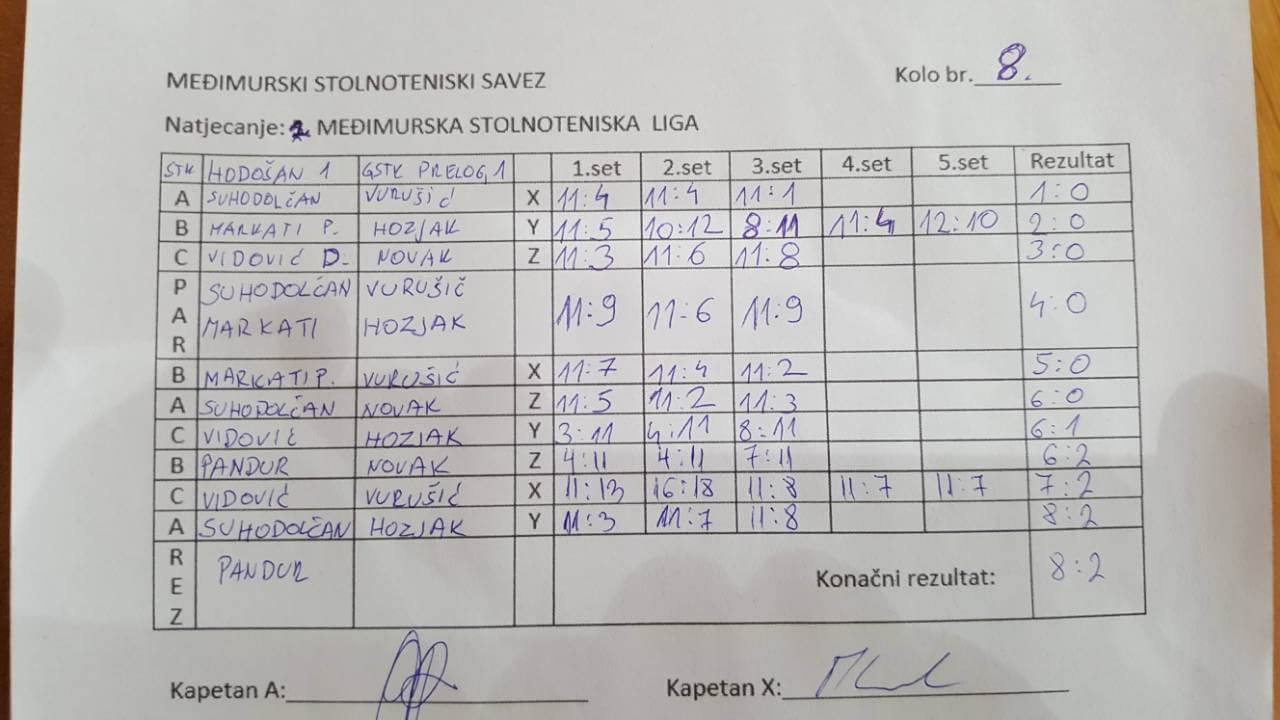 MEĐIMURSKI STOLNOTENISKI SAVEZ Kolo br. 8.
Natjecanje: 2. MEĐIMURSKA STOLNOTENISKA LIGA
STK HODOŠAN 1 GSTK PRELOG 1 1.set 2.set 3.set 4.set 5.set Rezultat
A SUHODOLČAN VURUŠIĆ X 11:4 11:4 11:1 1:0
B MARKATI P. HOZJAK Y 11:5 10:12 8:11 11:4 12:10 2:0
C VIDOVIĆ D. NOVAK Z 11:3 11:6 11:8 3:0
P SUHODOLČAN VURUŠIČ
A MARKATI HOZJAK 11:9 11-6 11:9 4:0
R
B MARKATI P. VURUŠIĆ X 11:7 11:4 11:2 5:0
A SUHODOLČAN NOVAK Z 11:5 11:2 11:3 6:0
C VIDOVIĆ HOZJAK Y 3:11 4:11 8:11 6:1
B PANDUR NOVAK Z 4:11 4:11 7:11 6:2
C VIDOVIĆ VURUŠIĆ X 11:13 16:18 11:8 11:7 11:7 7:2
A SUHODOLČAN HOZJAK Y 11:3 11:7 11:8 8:2
R PANDUR
E Konačni rezultat: 8:2
Z
Kapetan A: Kapetan X: